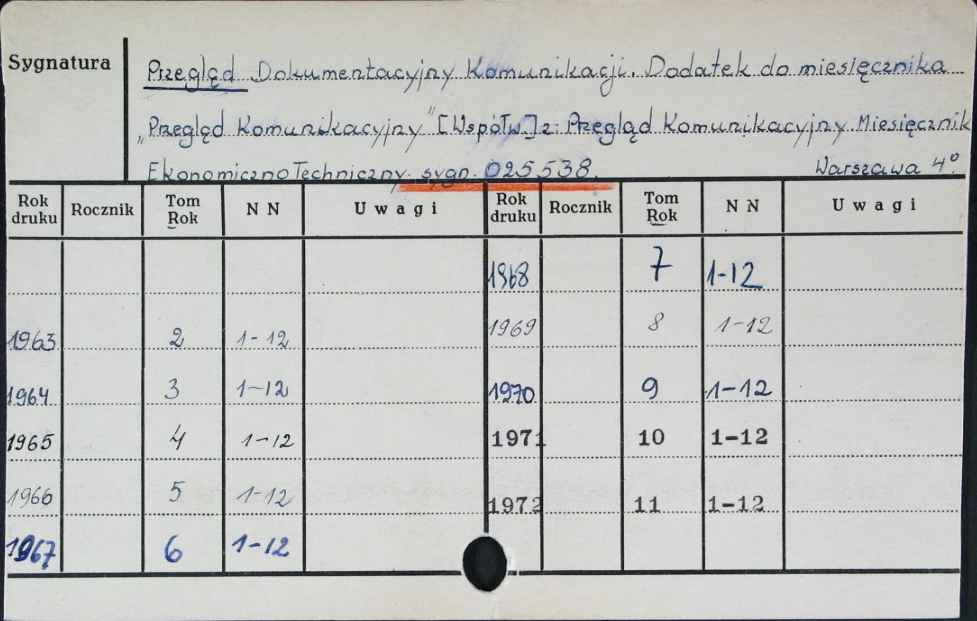 Sygnatura
Przegląd Dokumentacyjny Komunikacji. Dodatek do miesięcznika
„Przegląd Komunikacyjny" [Współw.] z: Przegląd Komunikacyjny. Miesięcznik
Ekonomiczno Techniczny. sygn. 025538. Warszawa 4°
Rok druku Rocznik Tom Rok N N Uwagi Rok druku Rocznik Tom Rok N N Uwagi
1968 7 1-12
1963 2 1-12 1969 8 1-12
1964 3 1-12 1970 9 1-12
1965 4 1-12 1971 10 1-12
1966 5 1-12 1972 11 1-12
1967 6 1-12